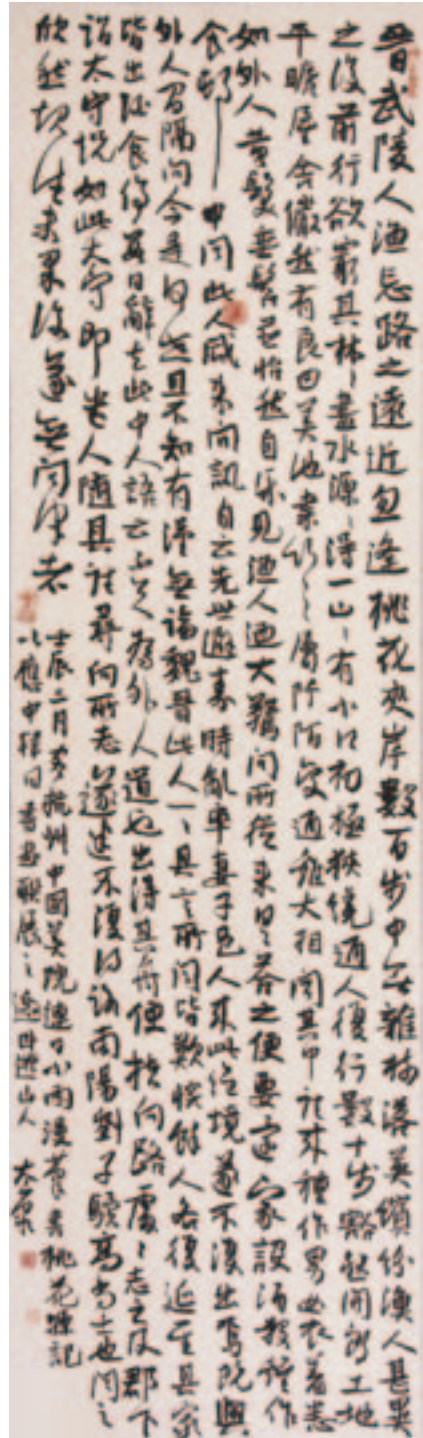 晋武陵人漁忘路之遠近忽逢桃花夾岸數百步中無雜樹落英繽紛漁人甚異
之復前行欲窮其林林盡水源得一山山有小口初極狹纔通人復行數十步豁然開朗土地
平曠屋舍儼然有良田美池桑竹之屬阡陌交通雞犬相聞其中往來種作男女衣著悉
如外人黄髮垂髫并怡然自乐見漁人迺大驚問所從來具答之便要還家設酒殺雞作
食邨中聞此人咸來問訊自云先世避秦時亂率妻子邑人來此絕境遂不復出焉既與
外人間隔問今是何世且不知有漢無論魏晋此人一一具言所聞皆歎惋餘人各復延至其家
皆出酒食停數日辭去此中人語云不足為外人道也出得其舟便扶向路處處志之及郡下
詣太守說如此太守即遣人隨其往尋向所志遂迷不復得路南陽劉子驥高尚士也聞之
欣然規往未果後遂無問津者
壬辰二月於杭州中國美院連日小雨漫書桃花源記
以應中韓日書画聯展之邀